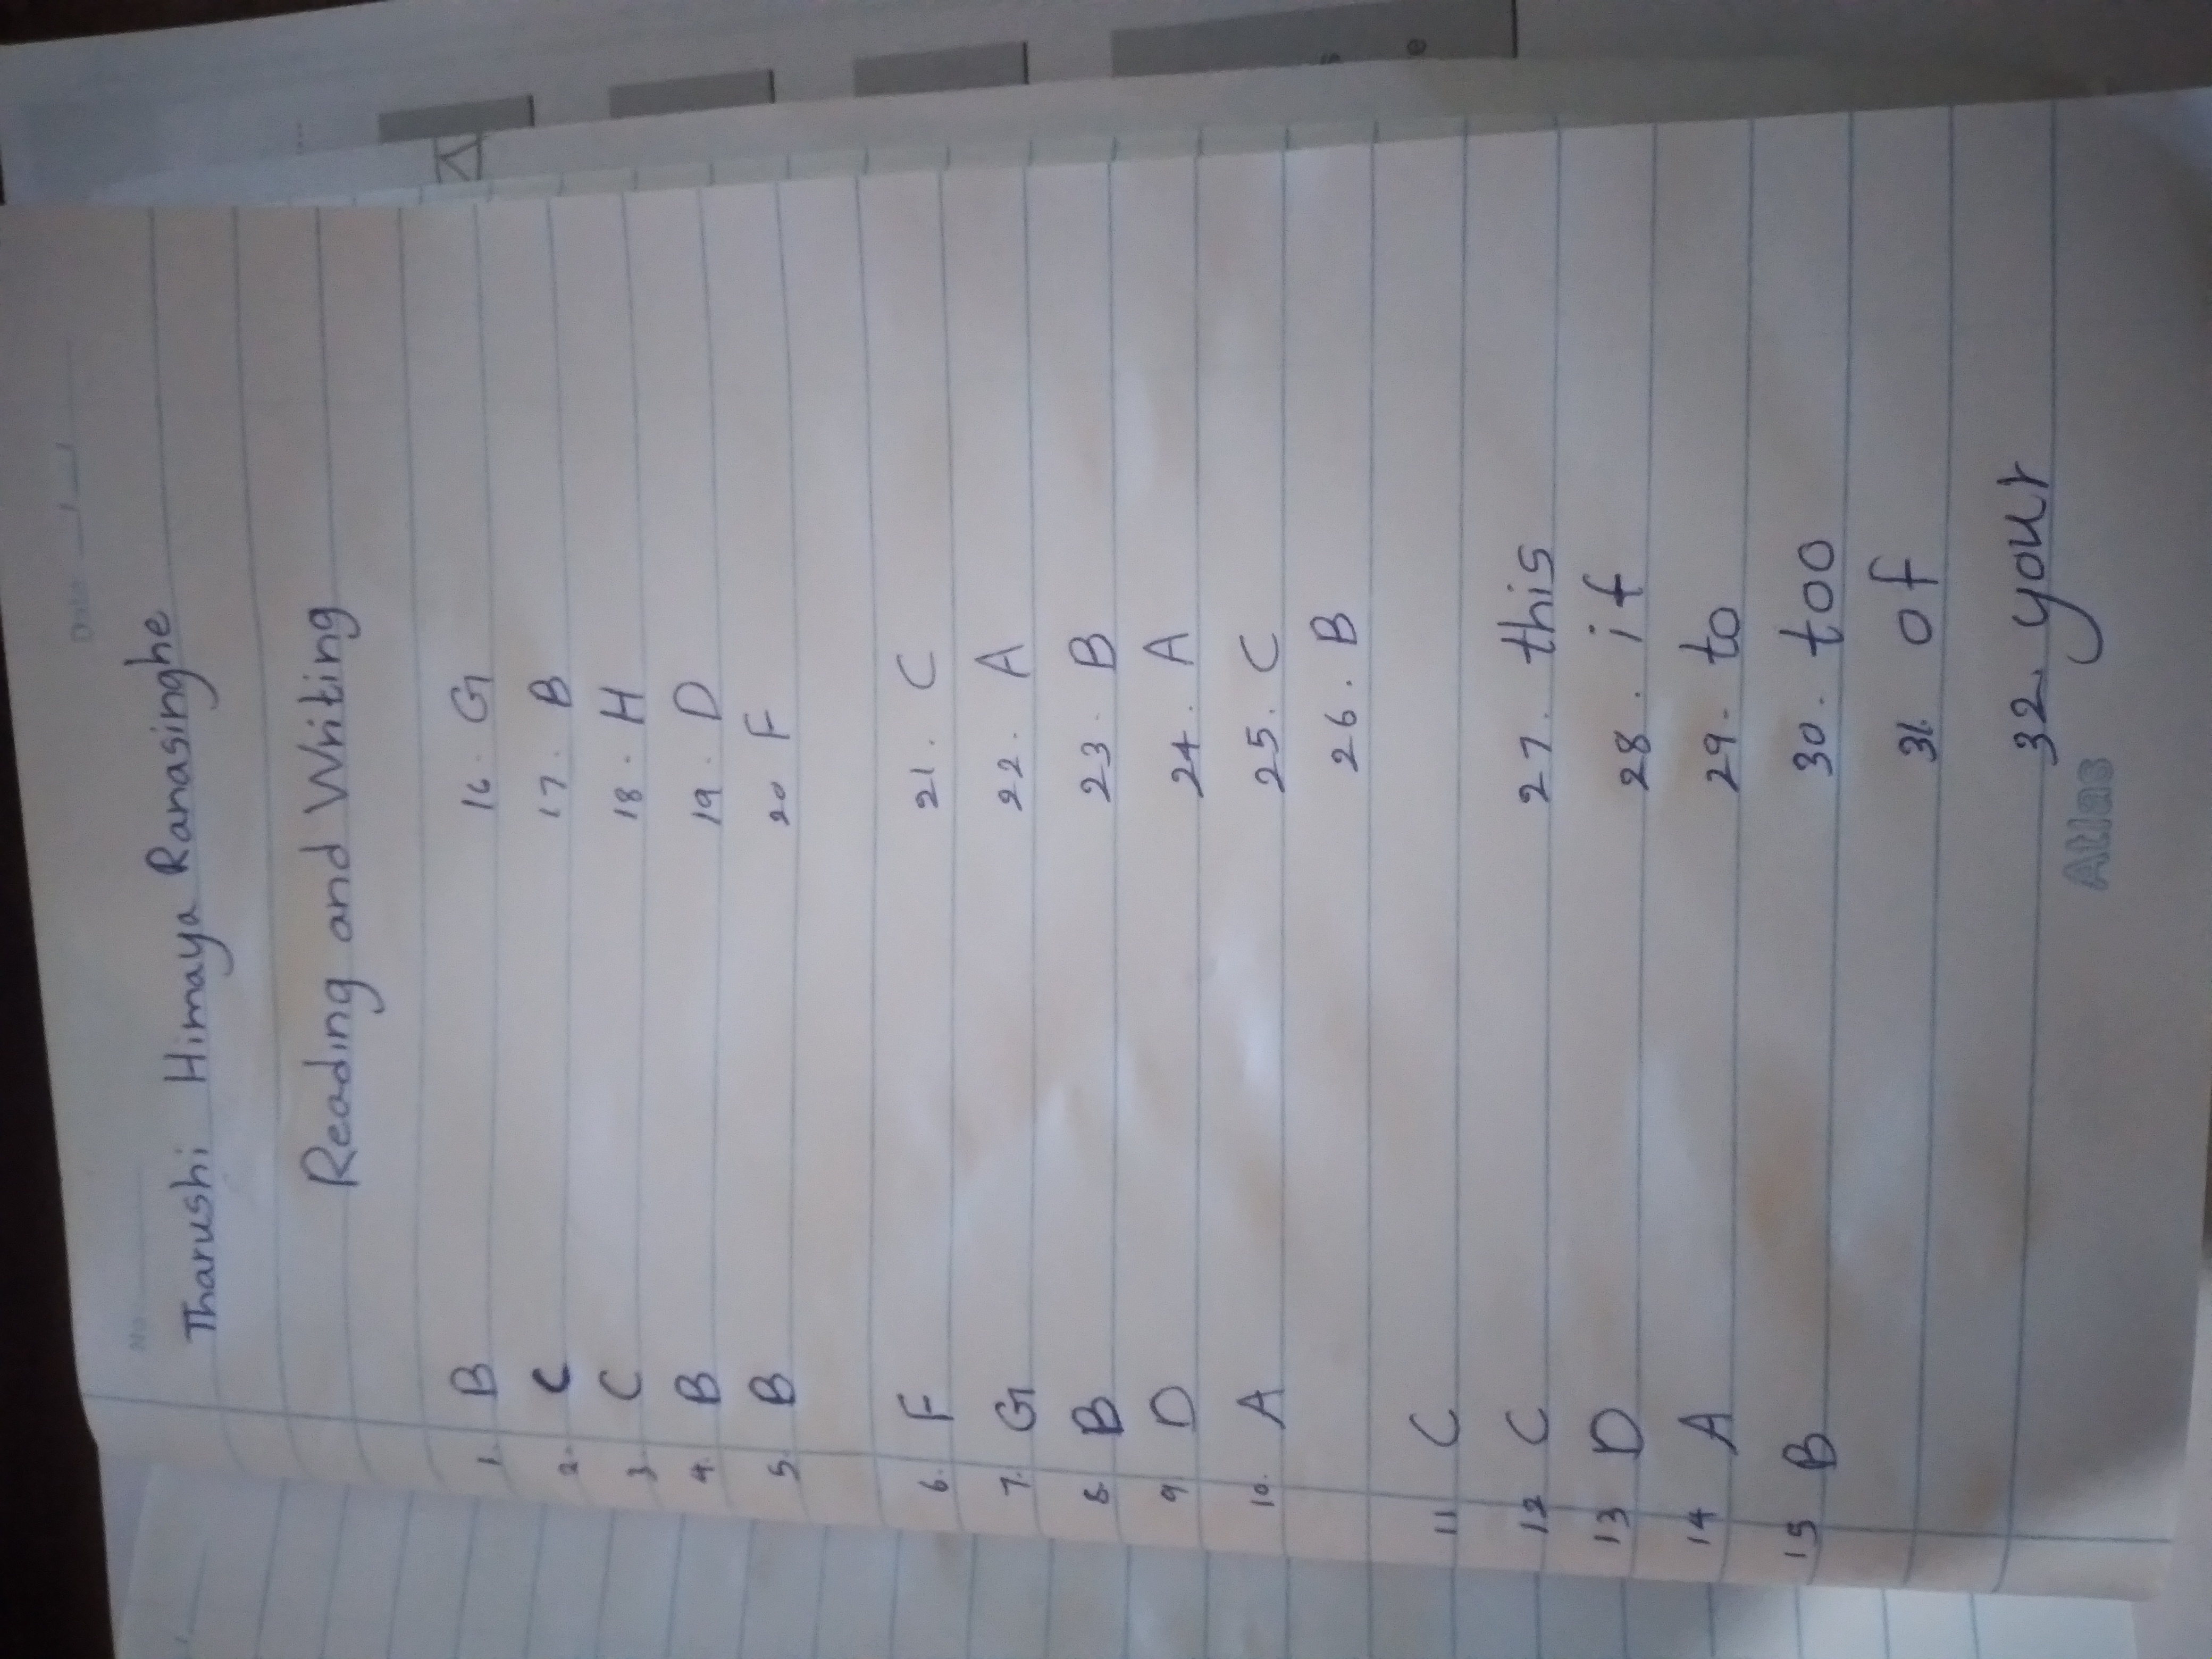 No.
Date
Tharushi Himaya Ranasinghe
Reading and Writing
1. B
2. C
3. C
4. B
5. B
6. F
7. G
8. B
9. D
10. A
11 C
12 C
13 D
14 A
15 B
16. G
17. B
18. H
19. D
20 F
21. C
22. A
23. B
24. A
25. C
26. B
27. this
28. if
29. to
30. too
31. of
32. your
Atlas